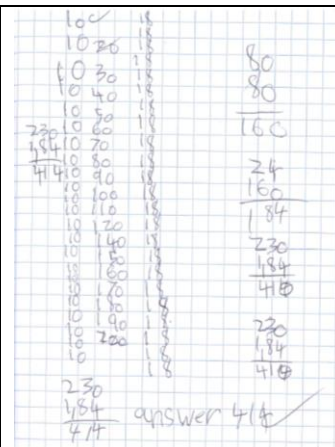 10 18
10 20 18
10 30 18
10 40 18
10 50 18
10 60 18
10 70 18
10 80 18
10 90 18
10 100 18
10 110 18
10 120 18
10 140 18
10 150 18
10 160 18
10 170 18
10 180 18
10 190 18
10 200 18
10 18
230
184
414
230
184
414
answer 414
80
80
160
24
160
184
230
184
230
184